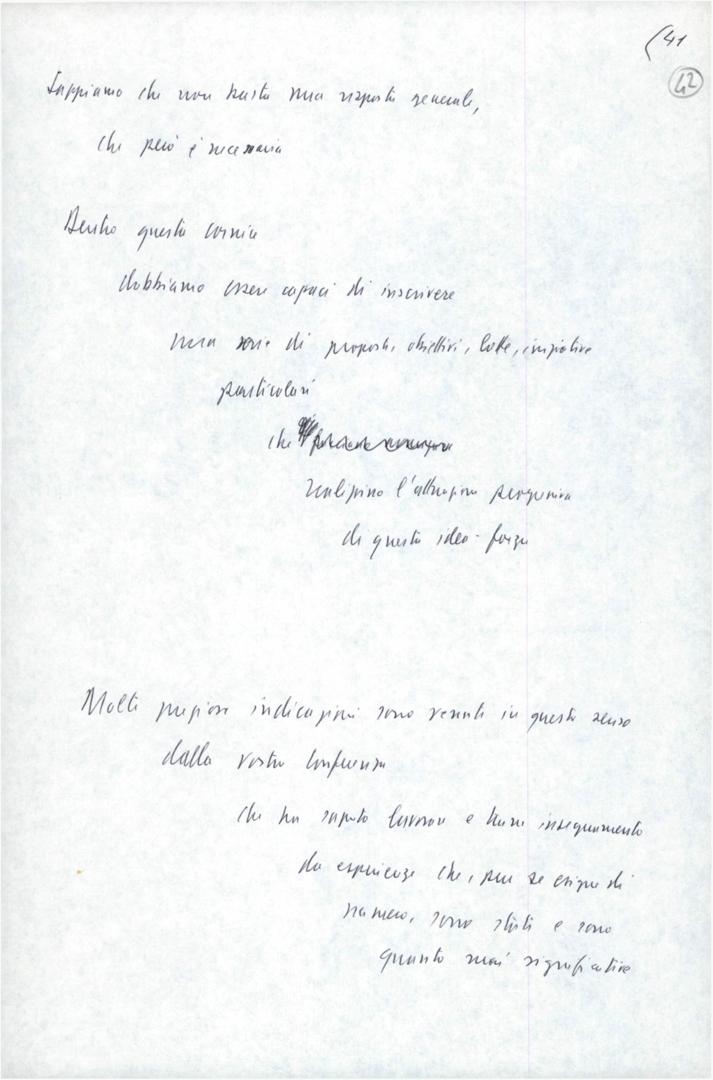 (41
42
Sappiamo che non basta una risposta generale,
che però è necessaria
Dentro questa cornice
dobbiamo essere capaci di inscrivere
una serie di proposte, obiettivi, lotte, iniziative
particolari
che
realizzino l'attuazione
di questa idea-forza
Molte preziose indicazioni sono venute in questo senso
dalla vostra Conferenza
che ha saputo lavorare e trarre insegnamento
da esperienze che, pur se esigue di
numero, sono state e sono
quanto mai significative